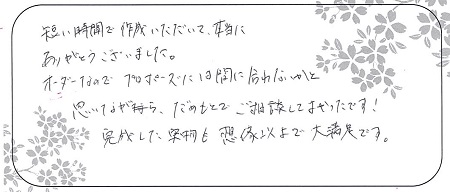 短い時間で作成いただいて、本当に
ありがとうございました。
オーダーなので プロポーズには間に合わないかと
思いながらも、だめもとで ご相談してよかったです！
完成した実物も 想像以上で 大満足です。